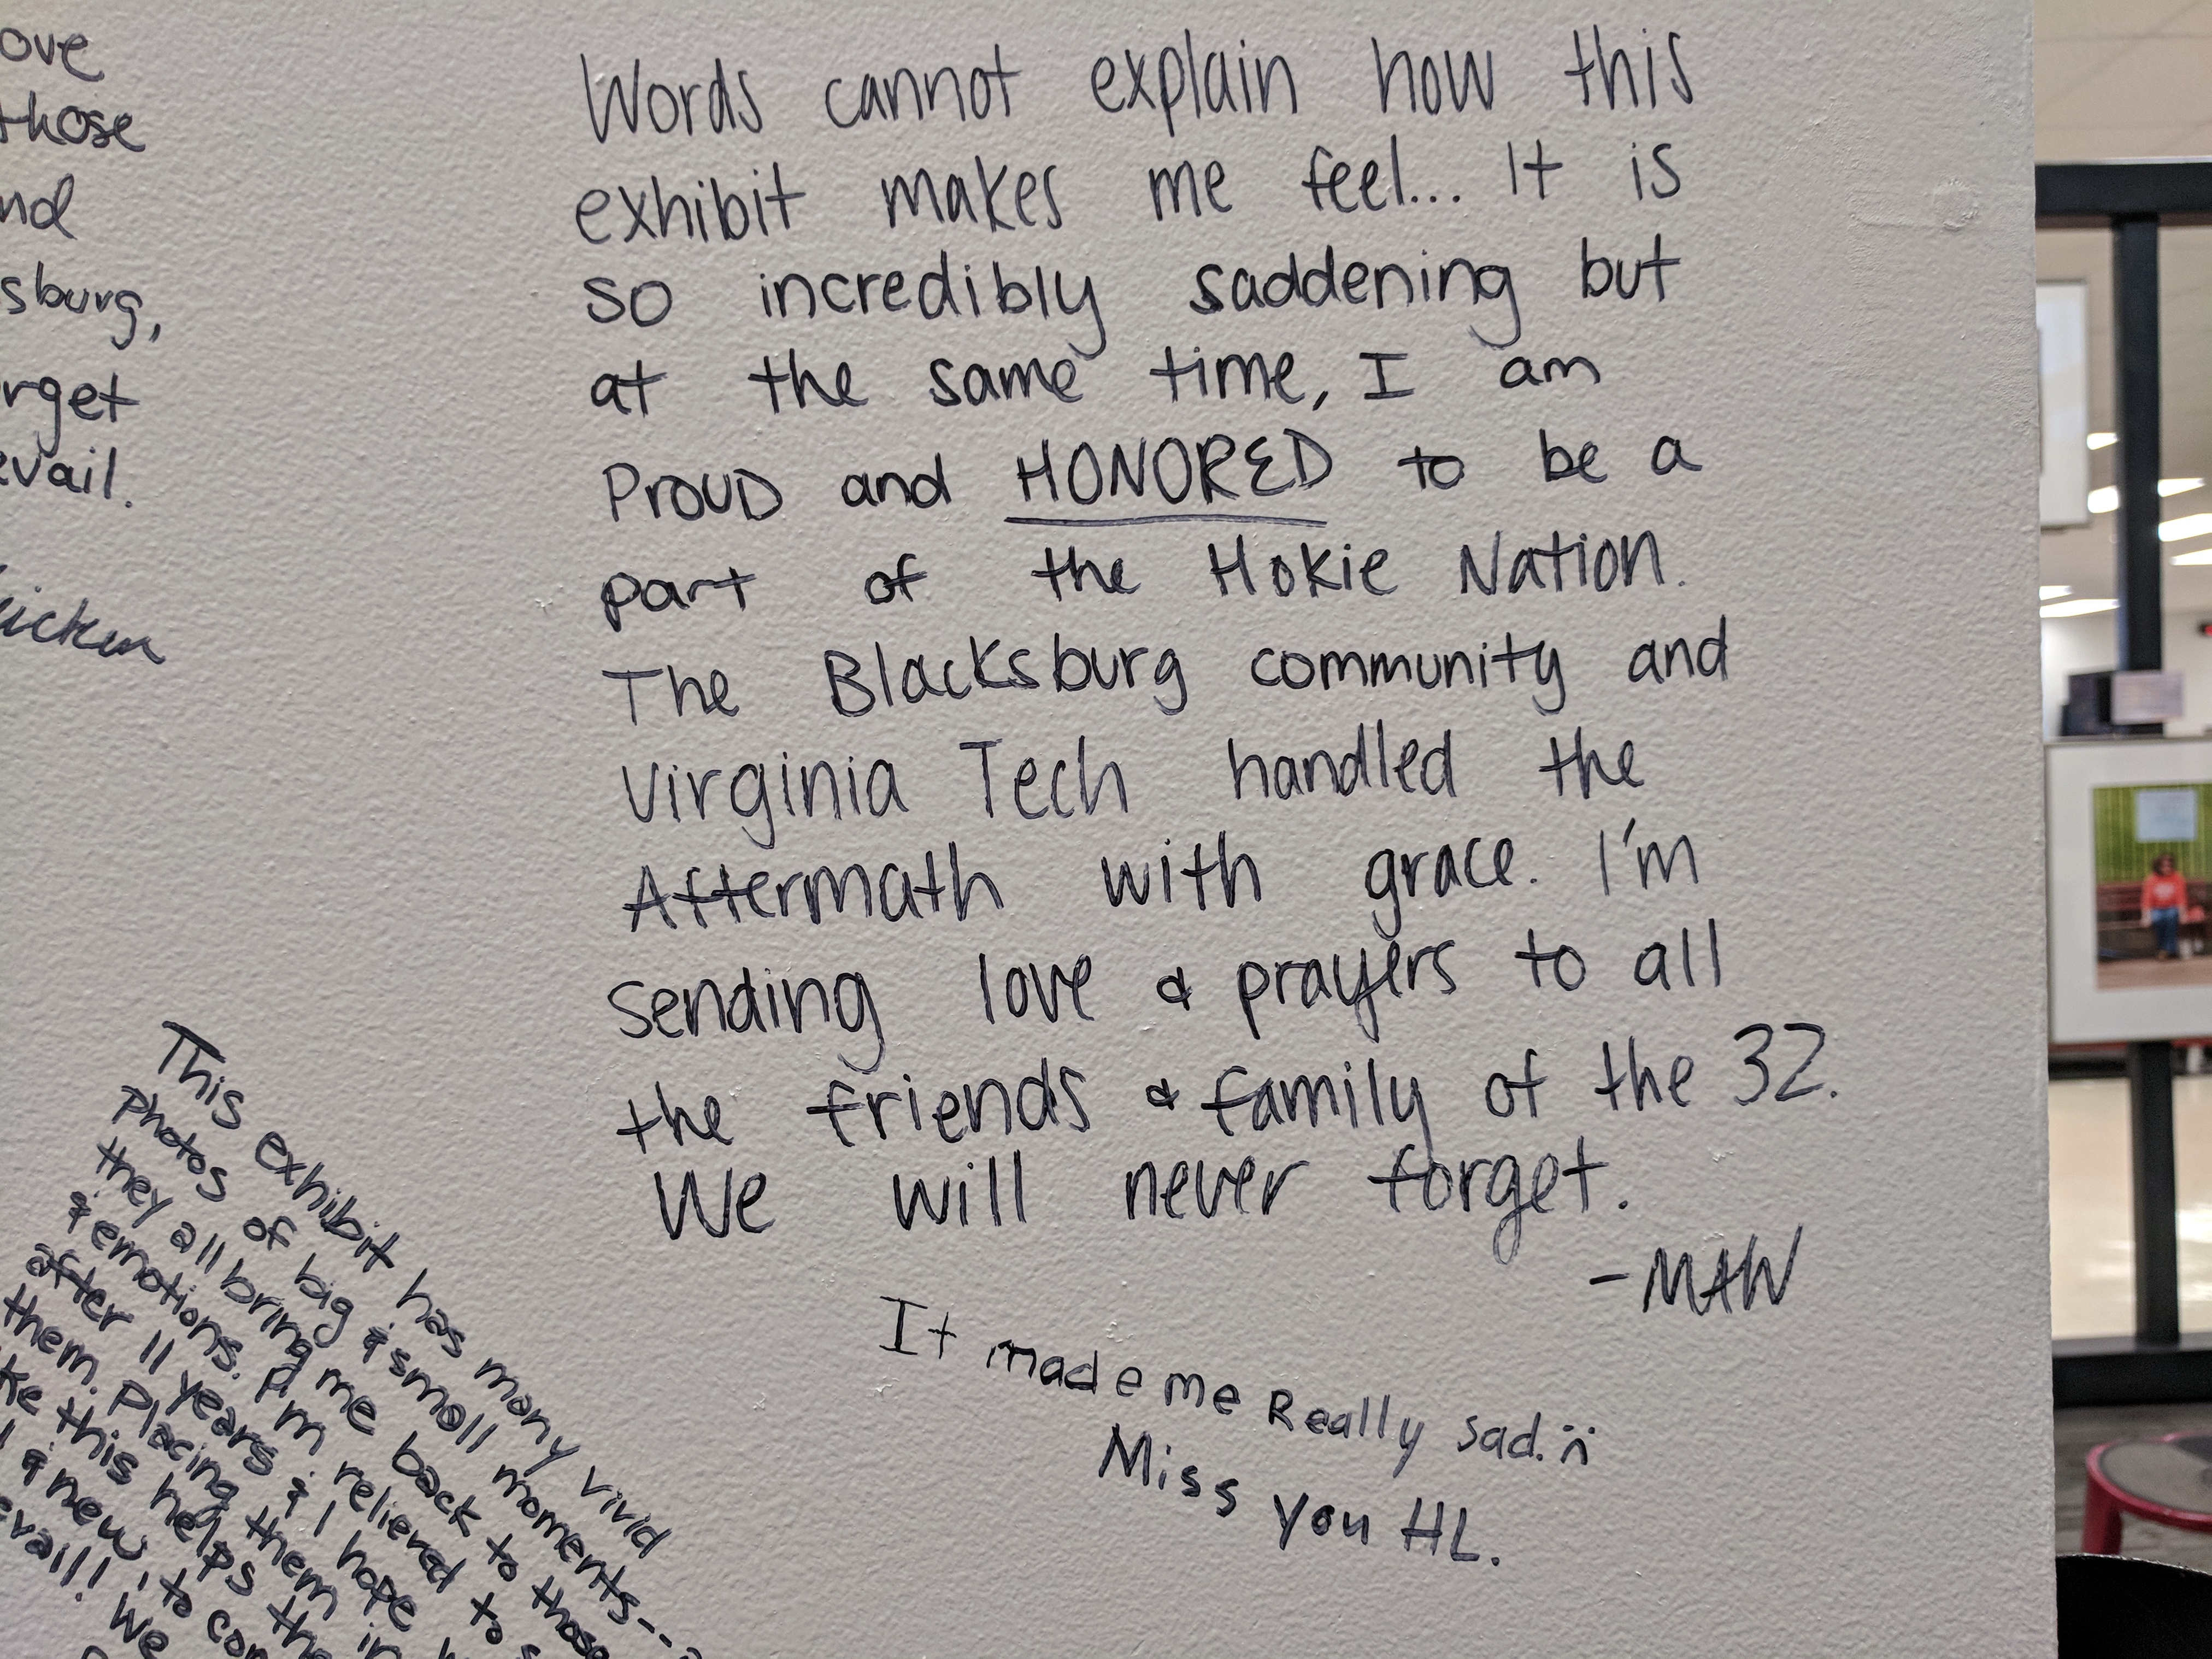 ove
those
nd
sburg,
rget
evail.
Words cannot explain how this
exhibit makes me feel... It is
so incredibly saddening but
at the same time, I am
PROUD and HONORED to be a
part of the Hokie Nation.
The Blacksburg community and
Virginia Tech handled the
Aftermath with grace. I'm
sending love & prayers to all
the friends & family of the 32.
We will never forget.
-MAW
It made me Really sad.
Miss you HL.
This exhibit has many vivid
photos of big & small moments---
they all bring me back to those
& emotions. I'm relieved to
after 11 years & I hope
them. Placing them in
ke this helps the
& new, to con
evail! We